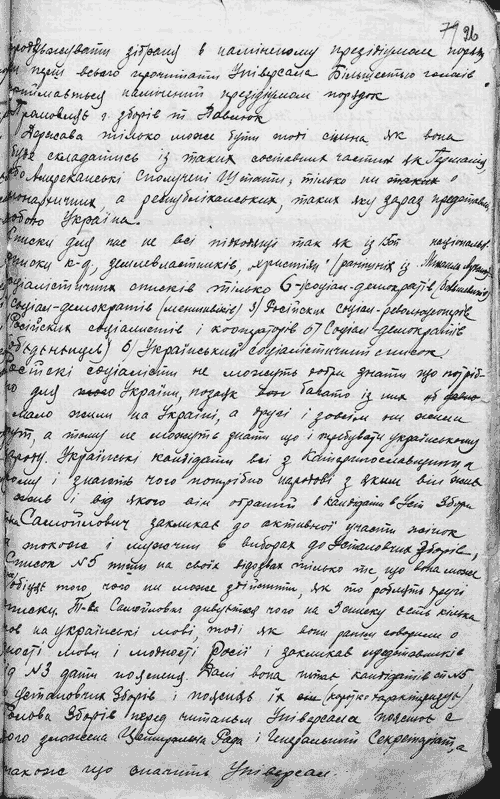 79 26
зібрання в наміченому президіумом поряд
перш всього прочитати Універсала Більшостью голосів
приймається намічений президіумом порядок
Промовець г. зборів т. Павлюк
Держава тілько може бути тоді сильна як вона
буде складатись із таких составних частин як Германія,
або Американські Сполучені Штати; тілько ни таких
монархичних, а республіканських, таких яку зараз представля
собою Україна.
Списки для нас не всі підходящі так як із
списки к-д, землевластників, христіян (
соціалістичних списків тілько 6 - 1) соціал-демократів (большевиків)
Соціал-демократів (меншивиків) 3) Російских Соціал-революціонерів
Російских соціалістів і кооператорів 5) Соціал демократів
6) Український соціалістичний список.
Російскі соціалисти не можуть добре знати що потріб-
но для України, позаяк багато із них
мало жили на Україні, а другі і зовсім ни жили
тут, а тому не можуть знати що і требувати українському
народу. Українські кандідати всі з Катеринославщини, а
тому і знають чого потрібно народові з яким він жив
і від якого він обраний в кандідати в Уст. Збори
Самойлович закликає до активної участи жінок
а також і мужчин в виборах до Установчих Зборів,
Список N 5 пише на своїх відозвах тілько те, що вона може
того чого ни може здійснити, як то роблять другі
списки. Т-ка Самойлович дивується чого на 3 списку єсть кілька
слів на українські мові, тоді як вони раніш говорили о
мови і Росії і закликає представників
від N 3 дати пояснення. Далі вона читає кандідатів сп. N 5
до Установчих Зборів і поясняє їх (коротко характеризує)
Голова Зборів перед читаньем Універсала пояснює с
кого зложена Центральна Рада і Генеральний Секретаріат, а
також що значить Універсал.